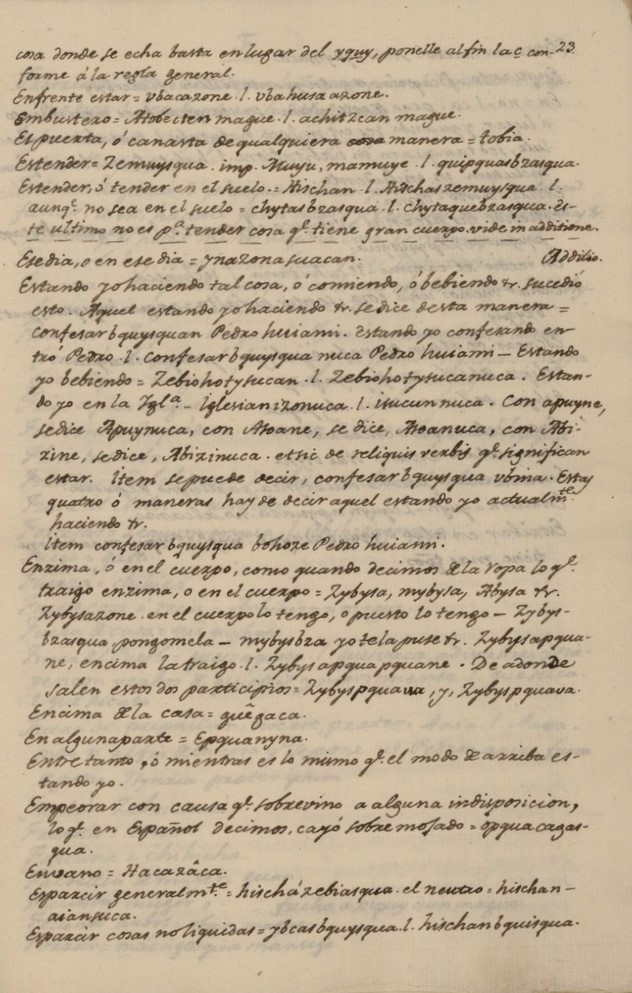 23.
cosa donde se echa basta en lugar del yquy, ponelle al fin la c con-
forme á la regla general.
Enfrente estar = vbacazone. l. vbahusa azone.
Embustero = Atobecten mague. l. achitzcan mague.
Espuerta, ó canasta de qualquiera manera = tobia.
Estender = Zemuysqua. imp. Muyu, mamuye. l. quipquasbzasqua.
Estender, ó tender en el suelo. = Hischan. l. Hischas zemuysqua. l.
aunq.e no sea en el suelo = chytasbzasqua. l. chytaquebzasqua. Es-
te ultimo no es p.a tender cosa q.e tiene gran cuerpo. vide in additione.
Ese dia, o en ese dia = ynazona suacan. Additio.
Estando yo haciendo tal cosa, ó comiendo, ó bebiendo &r. sucedió
esto. Aquel estando yo haciendo &r. se dice desta manera =
confesar bquysquan Pedro huiami. Estando yo confesando en-
tró Pedro. l. confesar bquysqua nuca Pedro huiami — Estando
yo bebiendo = Zebiohotysucan. l. Zebiohotysucanuca. Estan-
do yo en la Ygl.a - Iglesian izonuca. l. isucun nuca. Con apuyne,
se dice Apuynuca, con Asoane, se dice, Asoanuca, con Abi-
zine, se dice, Abizinuca. et sic de reliquis verbis q.e significan
estar. Item se puede decir, confesar bquysqua vbina. Estas
quatro ó maneras hay de decir aquel estando yo actualm.te
haciendo &r.
Item confesar bquysqua bohoze Pedro huiami.
Enzima, ó en el cuerpo, como quando decimos de la ropa lo q.e
traigo enzima, o en el cuerpo = Zybysa, mybysa, Abysa &r.
Zybysazone. en el cuerpo lo tengo, o puesto lo tengo — Zybys-
bzasqua pongomela — mybysbza yo te la puse &r. Zybysapqua-
ne, encima la traigo. l. Zybysapquapquane. De adonde
salen estos dos participios = Zybyspquaua, y, Zybyspquava.
Encima de la casa = guê gaca.
En alguna parte = Epquanyna.
Entre tanto, ó mientras es lo mismo q.e el modo de arriba es-
tando yo.
Empeorar con causa q.e sobrevino a alguna indisposicion,
lo q.e en Español decimos, cayó sobre mojado = opqua cagas-
qua.
En vano = Hacazâca.
Esparcir generalm.te = hischá zebiasqua. el neutro = hischan
aiansuca.
Esparcir cosas no liquidas = ybcasbquysqua. l. hischan bquisqua.